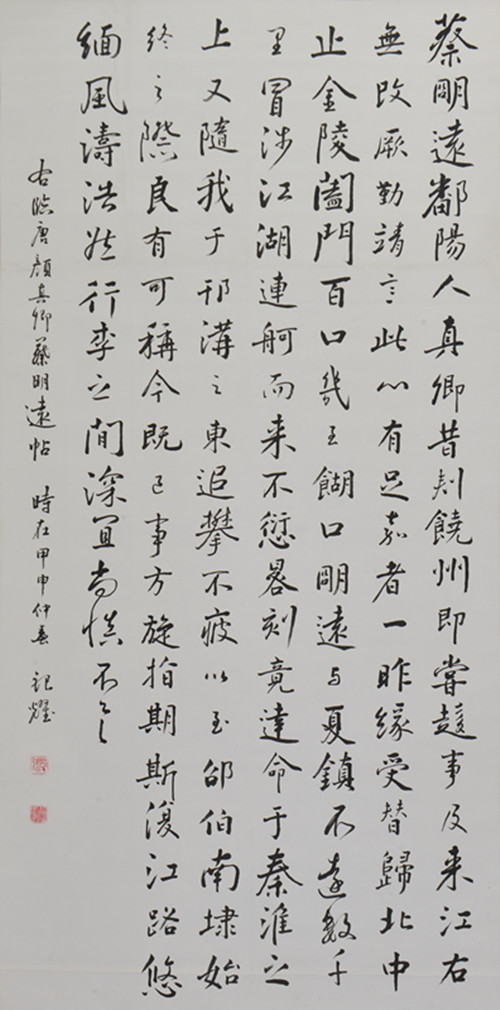 蔡明遠鄱陽人真卿昔刺饒州即嘗趍事及来江右
無改厥勤靖言此心有足嘉者一昨緣受替歸北中
止金陵闔門百口幾至餬口明遠与夏鎮不遠數千
里冒涉江湖連舸而来不愆晷刻竟達命于秦淮之
上又隨我于邗溝之東追攀不疲以至邵伯南埭始
終之際良有可稱今既已事方旋指期斯復江路悠
緬風濤浩然行李之間深宜尚慎不
右臨唐顏真卿蔡明遠帖 時在甲申仲春 耀